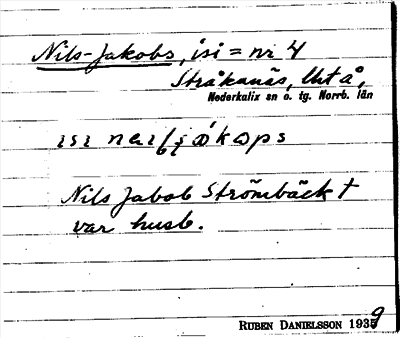 Nils-Jakobs, isi = nr 4
Stråkanäs, Utå,
Nederkalix sn o. tg. Norrb. län
ısı
Nils Jakob Strömbäck †
var husb.
RUBEN DANIELSSON 1939